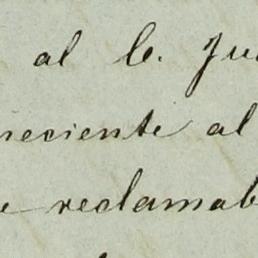 al C. Ju
neciente al
e reclamab